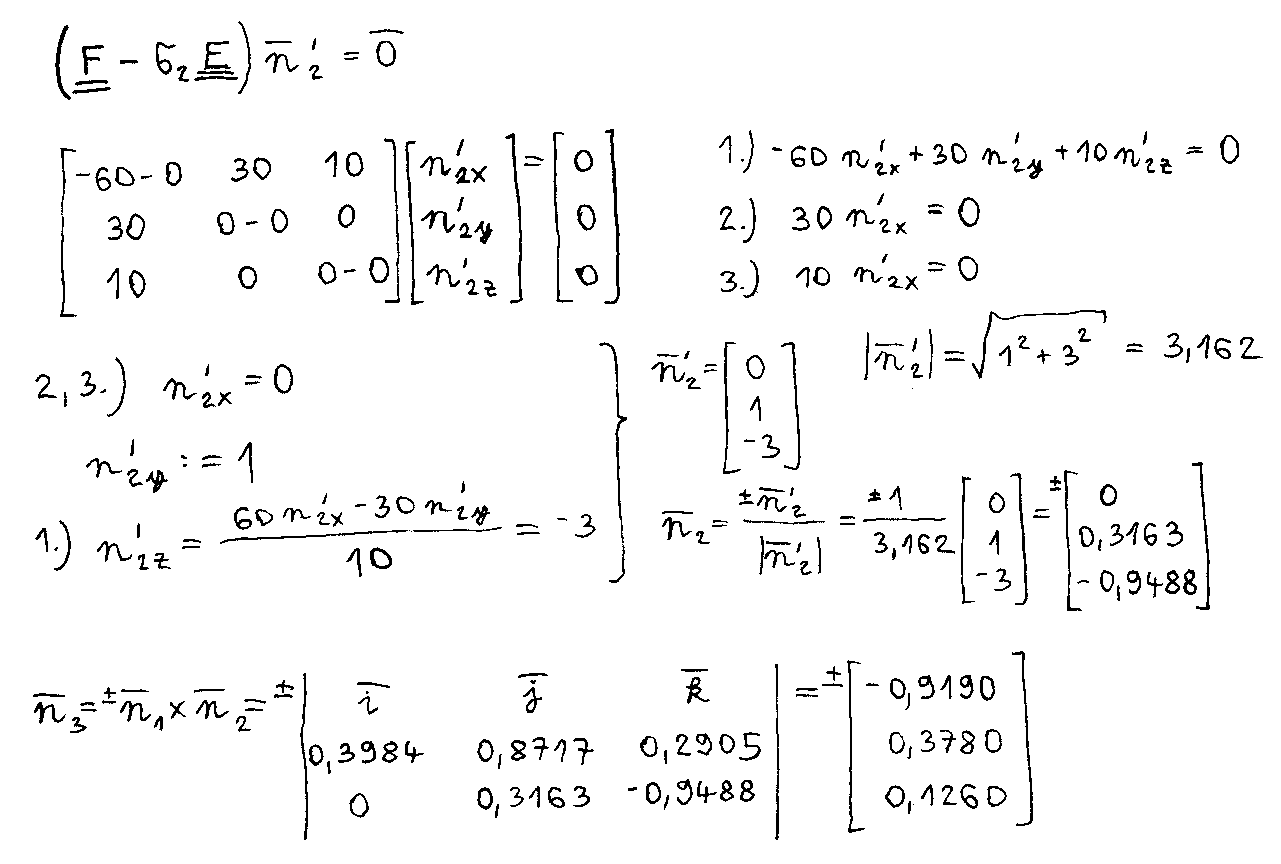 (F - σ₂E) n̄′₂ = 0̄
[-60-0 30 10; 30 0-0 0; 10 0 0-0] [n′₂ₓ; n′₂y; n′₂z] = [0; 0; 0]
1.) -60 n′₂ₓ + 30 n′₂y + 10 n′₂z = 0
2.) 30 n′₂ₓ = 0
3.) 10 n′₂ₓ = 0
2,3.) n′₂ₓ = 0
n′₂y := 1
1.) n′₂z = (60 n′₂ₓ - 30 n′₂y) / 10 = -3
n̄′₂ = [0; 1; -3]
|n̄′₂| = √(1² + 3²) = 3,162
n̄₂ = ±n̄′₂ / |n̄′₂| = ±1 / 3,162 [0; 1; -3] = ±[0; 0,3163; -0,9488]
n̄₃ = ±n̄₁ × n̄₂ = ±|ī j̄ k̄; 0,3984 0,8717 0,2905; 0 0,3163 -0,9488| = ±[-0,9190; 0,3780; 0,1260]